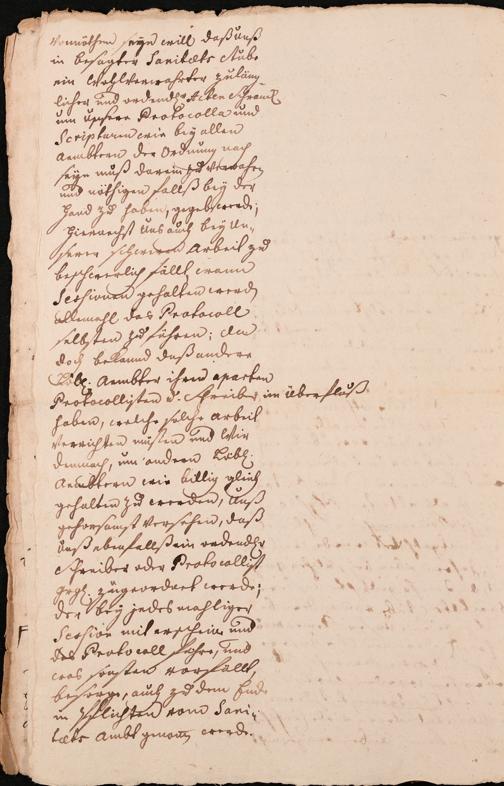 Vonnöthen seyn will daß unß
in besagter Sanitæts Stube
ein Wohlverwahrter zuläng-
licher und ordendl. Acten Schranck
um unsere Protocolla und
Scripturen wie bey allen
Aembtern der Ordnung nach
seyn muß darein zu verwahren
und nöthigen fallß bey der
Hand zu haben, gegeb. werde;
Hiernechst unß auch bey un-
serer schweren Arbeit zu
beschwerlich fällt wann
Sessionen gehalten werd.
allemahl das Protocoll
selbsten zu führen; da
doch bekannd daß andere
Löbl. Aembter ihren aparten
Protocollisten u. Schreiber im überfluß
haben, welche solche Arbeit
verrichten müßen und Wir
demnach, um andern Löbl.
Aembtern wie billig gleich
gehalten zu werden, unß
gehorsamst versehen, daß
unß ebenfallß ein ordendl.
Schreiber oder Protocollist
zugeordnet werde;
der bey jedesmahliger
Session mit erscheine und
das Protocoll führe, und
was sonsten vorfällt,
besorge, auch zu dem Ende
in Pflichten vom Sani-
tæts Ambt genom. werde.